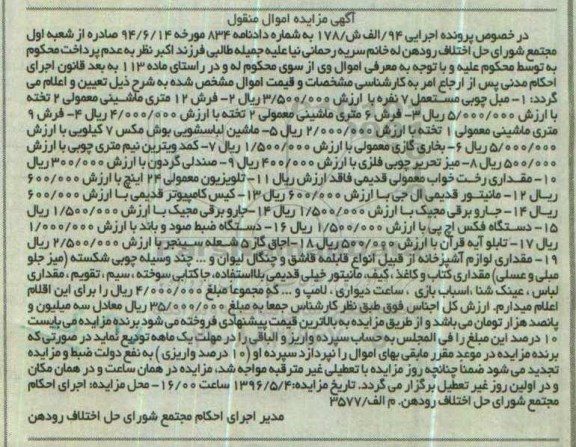 آگهی مزایده اموال منقول
در خصوص پرونده اجرایی ۹۴/الف ش/۱۷۸ به شماره دادنامه ۸۳۴ مورخه ۹۴/۶/۱۴ صادره از شعبه اول
مجتمع شورای حل اختلاف رودهن له خانم سریه رحمانی نیا علیه جمیله طالبی فرزند اکبر نظر به عدم پرداخت محکوم
به توسط محکوم علیه و با توجه به معرفی اموال وی از سوی محکوم له و در راستای ماده ۱۱۳ به بعد قانون اجرای
احکام مدنی پس از ارجاع امر به کارشناسی مشخصات و قیمت اموال مشخص شده به شرح ذیل تعیین و اعلام می
گردد: ۱- مبل چوبی مستعمل ۷ نفره با ارزش ۳/۵۰۰/۰۰۰ ریال ۲- فرش ۱۲ متری ماشینی معمولی ۲ تخته
با ارزش ۵/۰۰۰/۰۰۰ ریال ۳- فرش ۶ متری ماشینی معمولی ۲ تخته با ارزش ۴/۰۰۰/۰۰۰ ریال ۴- فرش ۹
متری ماشینی معمولی ۱ تخته با ارزش ۲/۰۰۰/۰۰۰ ریال ۵- ماشین لباسشویی بوش مکس ۷ کیلویی با ارزش
۵/۰۰۰/۰۰۰ ریال ۶- بخاری گازی معمولی با ارزش ۱/۵۰۰/۰۰۰ ریال ۷- کمد ویترین نیم متری چوبی با ارزش
۵۰۰/۰۰۰ ریال ۸- میز تحریر چوبی فلزی با ارزش ۴۰۰/۰۰۰ ریال ۹- صندلی گردون با ارزش ۳۰۰/۰۰۰ ریال
۱۰- مقداری رخت خواب معمولی قدیمی فاقد ارزش ریال ۱۱- تلویزیون معمولی ۲۴ اینچ با ارزش ۶۰۰/۰۰۰
ریال ۱۲- مانیتور قدیمی ال جی با ارزش ۶۰۰/۰۰۰ ریال ۱۳- کیس کامپیوتر قدیمی با ارزش ۶۰۰/۰۰۰
ریال ۱۴- جارو برقی مجیک با ارزش ۱/۵۰۰/۰۰۰ ریال ۱۴-جارو برقی مجیک با ارزش ۱/۵۰۰/۰۰۰ ریال
۱۵- دستگاه فکس اچ پی با ارزش ۱/۵۰۰/۰۰۰ ریال ۱۶- دستگاه ضبط صوت و باند با ارزش ۱/۰۰۰/۰۰۰
ریال ۱۷- تابلو آیه قرآن با ارزش ۵۰۰/۰۰۰ ریال ۱۸-اجاق گاز ۵ شعله سینجر با ارزش ۲/۵۰۰/۰۰۰ ریال
۱۹- مقداری لوازم آشپزخانه از قبیل انواع قابلمه قاشق و چنگال لیوان و ... چند وسیله چوبی شکسته (میز جلو
مبلی و عسلی) مقداری کتاب و کاغذ، کیف، مانیتور خیلی قدیمی بلااستفاده، جا کتابی سوخته، سیم، تقویم، مقداری
لباس ، عینک شنا ،اسباب بازی ، ساعت دیواری ، لامپ و ... که مجموعا مبلغ ۴/۰۰۰/۰۰۰ ریال را برای این اقلام
اعلام میدارم. ارزش کل اجناس فوق طبق نظر کارشناس جمعا به مبلغ ۳۵/۰۰۰/۰۰۰ ریال معادل سه میلیون و
پانصد هزار تومان می باشد و از طریق مزایده به بالاترین قیمت پیشنهادی فروخته می شود برنده مزایده می بایست
۱۰ درصد این مبلغ را فی المجلس به حساب سپرده واریز و الباقی را در مهلت یک ماهه تودیع نماید در صورتی که
برنده مزایده در موعد مقرر مابقی بهای اموال را نپردازد سپرده او (۱۰ درصد واریزی) به نفع دولت ضبط و مزایده
تجدید می شود ضمنا چنانچه روز مزایده با تعطیلی غیر مترقبه مواجه شد، مزایده در همان ساعت و در همان مکان
و در اولین روز غیر تعطیل برگزار می گردد. تاریخ مزایده:۱۳۹۶/۵/۴ ساعت ۱۶/۰۰- محل مزایده: اجرای احکام
مجتمع شورای حل اختلاف رودهن. م الف/۳۵۷۷
مدیر اجرای احکام مجتمع شورای حل اختلاف رودهن